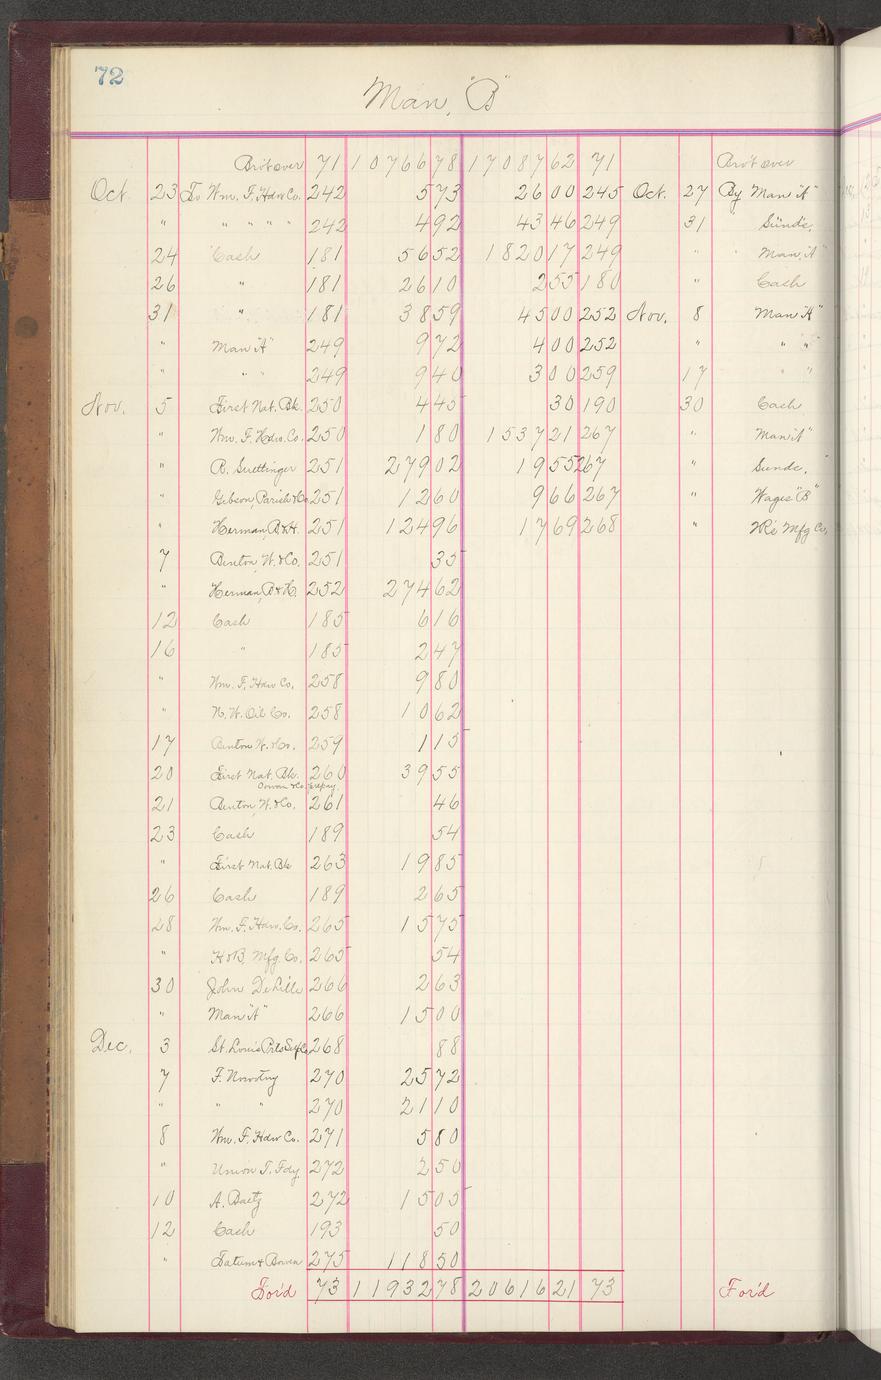 72
Man, "B"
Bro't over 71 10766 78 17087 62 71 Bro't over
Oct. 23 To Wm. F. Hdw Co. 242 5 73 26 00 245 Oct. 27 By Man "A"
" " " " " 242 4 92 43 46 249 31 Sunds.
24 Cash 181 56 52 1820 17 249 " " Man "A"
26 " 181 26 10 2 55 180 " Cash
31 " 181 38 59 45 00 252 Nov. 8 Man "A"
" Man "A" 249 9 72 4 00 252 " " "
" " " 249 9 40 3 00 259 17 " "
Nov. 5 First Nat. Bk. 250 4 45 30 190 30 Cash
" Wm. F. Hdw. Co. 250 1 80 1537 21 267 " Man "A"
" B. Grettinger 251 279 02 19 55 267 " Sunds. "
" Gibson, Parish & Co 251 12 60 9 66 267 " Wages "B"
" Herman, B & H. 251 124 96 17 69 268 " Mfg Co.
7 Benton, W. & Co. 251 35
" Herman, B & H. 252 274 62
12 Cash 185 6 16
16 " 185 2 47
" Wm. F. Hdw Co. 258 9 80
" N. W. Oil Co. 258 10 62
17 Benton W. & Co. 259 1 15
20 First Nat. Bk. 260 39 55
Cowan & Co.
21 Benton W. & Co. 261 46
23 Cash 189 54
" First Nat. Bk 263 19 85
26 Cash 189 2 65
28 Wm. F. Hdw. Co. 265 15 75
" H & B. Mfg. Co. 265 54
30 John DeLille 266 2 63
" Man "A" 266 15 00
Dec. 3 St. Louis 268 88
7 F. Nowotny 270 25 72
" " " 270 21 10
8 Wm. F. Hdw Co. 271 5 80
" Union T. Fdy. 272 2 50
10 A. Baetz 272 15 05
12 Cash 193 50
" Tatum & Bowen 275 118 50
For'd 73 11932 78 20616 21 73 For'd